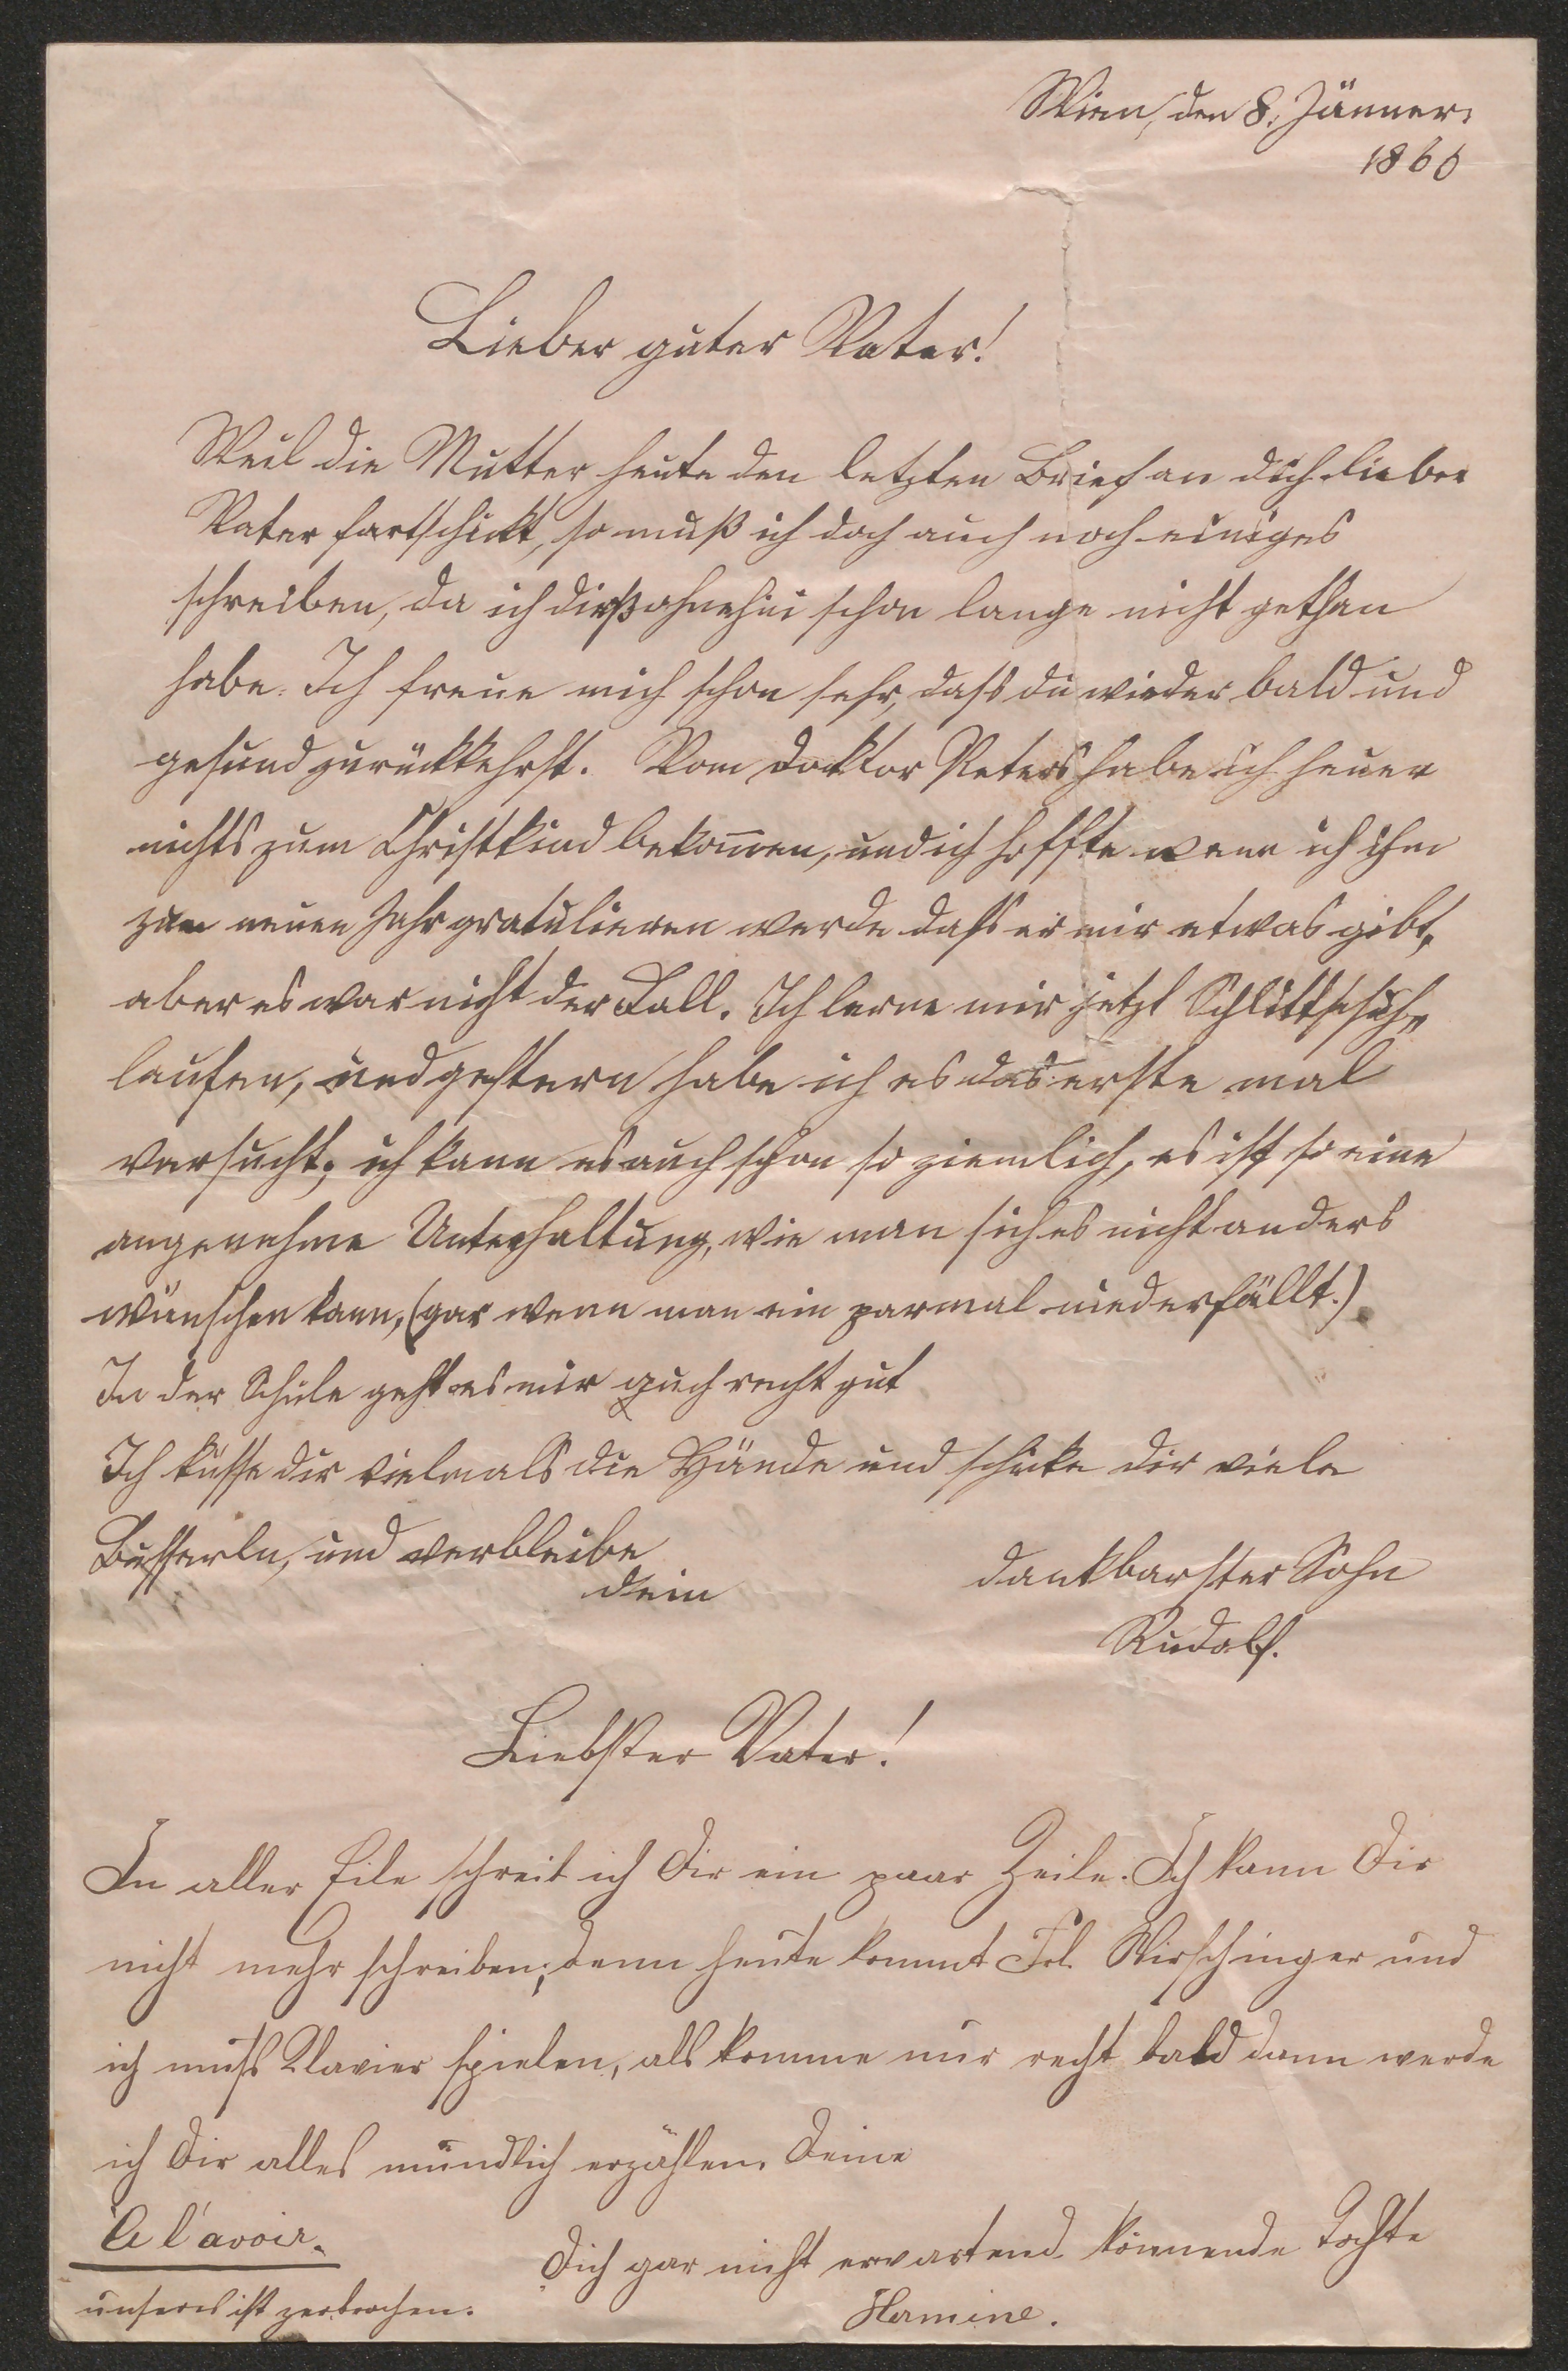 Wien, den 8. Jänner.
1866
Lieber guter Vater!
Weil die Mutter heute den letzten Brief an dich lieber
Vater fortschickt, so muß ich doch auch noch einiges
schreiben, da ich dieß ohnehin schon lange nicht gethan
habe. Ich freue mich schon sehr, dass du wieder bald und
gesund zurückkehrst. Vom Doktor Peters habe ich heuer
nichts zum Christkind bekom̅en, und ich hoffte wenn ich ihm
zum neuen Jahr gratulieren werde dass er mir etwas gibt,
aber es war nicht der Fall. Ich lerne mir jetzt Schlittschuh-
laufen, und gestern habe ich es das erste mal
versucht; ich kann es auch schon so ziemlich, es ist so eine
angenehme Unterhaltung, wie man sich es nicht anders
wünschen kann, (gar wenn man ein parmal niederfällt.)
In der Schule geht es mir auch recht gut
Ich küsse dir vielmals die Hände und schicke dir viele
Busserln, und verbleibe
dein
dankbarster Sohn
Rudolf.
Liebster Vater!
In aller Eile schreib ich Dir ein paar Zeile. Ich kann Dir
nicht mehr schreiben; denn heute kommt Frl. Wirschinger und
ich muss Klavier spielen, als komme nur recht bald dann werde
ich Dir alles mündlich erzählen. Deine
A l'avoir.
Dich gar nicht erwartend könnende Tochte
unseres ist zerbrochen.
Hermine.